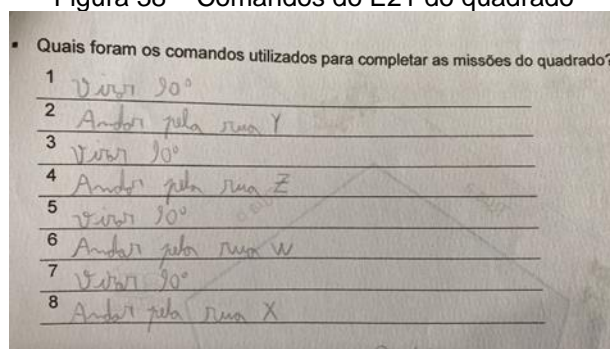 Figura 38 – Comandos do E21 do quadrado
▪ Quais foram os comandos utilizados para completar as missões do quadrado?
1 Virar 90°
2 Andar pela rua Y
3 Virar 90°
4 Andar pela rua Z
5 virar 90°
6 Andar pela rua W
7 Virar 90°
8 Andar pela rua X